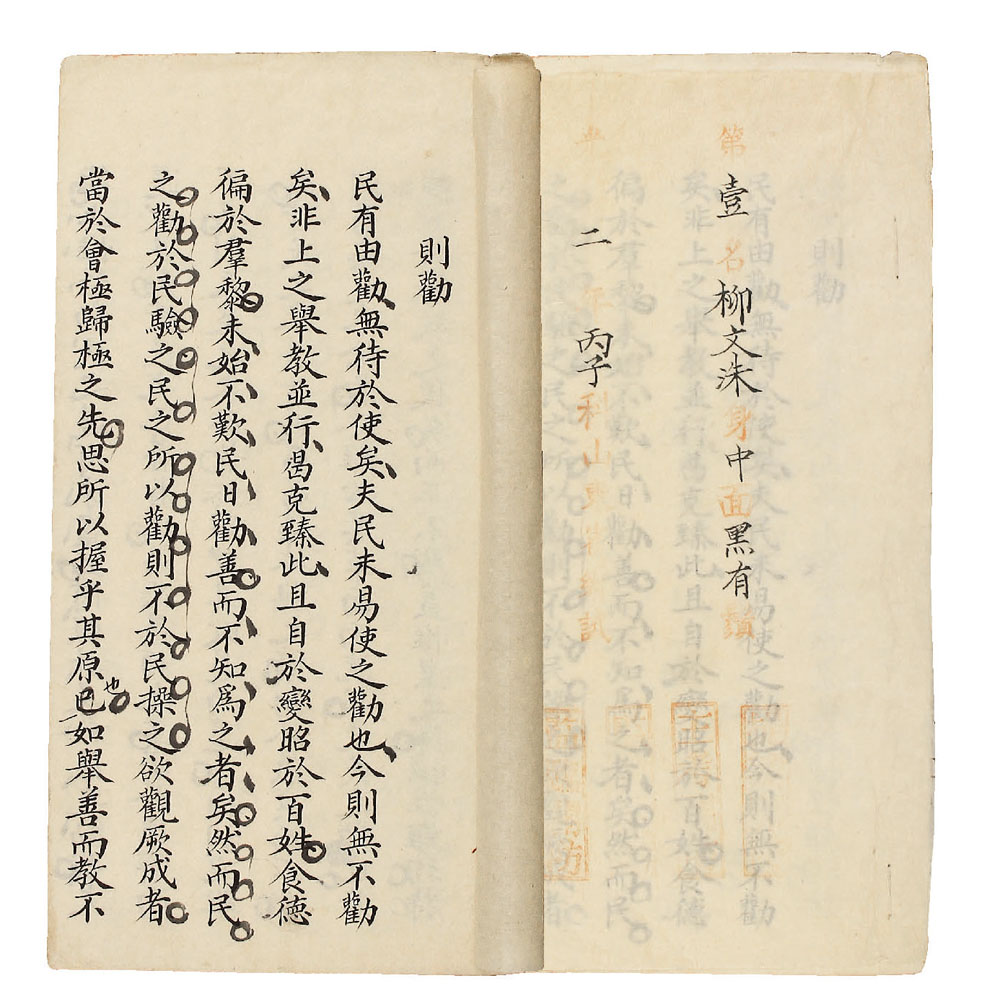 第壹名柳文洙身中面黑有鬚
二丙子科山東試
則勸
民有由勸無待於使矣夫民未易使之勸也今則無不勸
矣非上之舉教並行曷克臻此且自於變昭於百姓食德
徧於羣黎未始不歎民日勸善而不知爲之者矣然而民
之勸於民驗之民之所以勸則不於民操之欲觀厥成者
當於會極歸極之先思所以握乎其原已也如舉善而教不